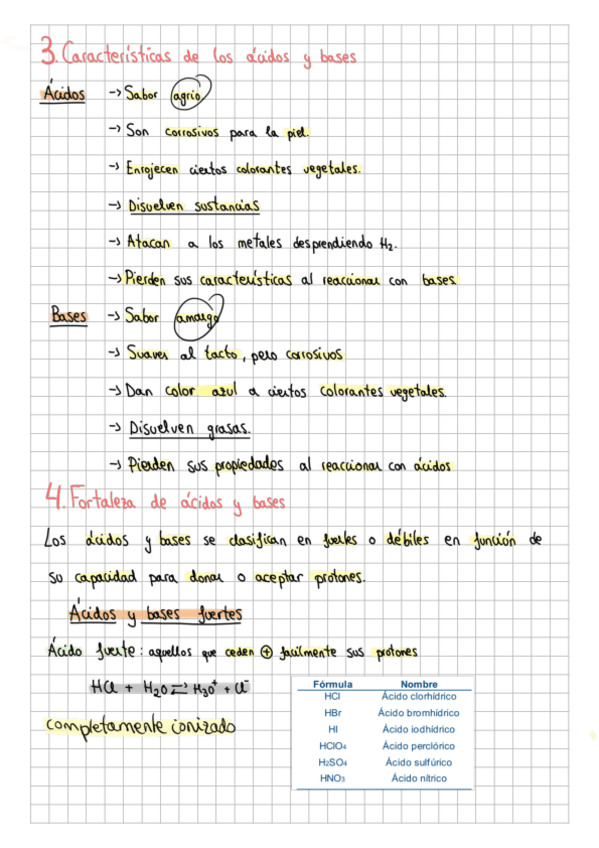 3. Características de los ácidos y bases
Ácidos -> Sabor agrio
-> Son corrosivos para la piel.
-> Enrojecen ciertos colorantes vegetales.
-> Disuelven sustancias
-> Atacan a los metales desprendiendo H₂.
-> Pierden sus características al reaccionar con bases
Bases -> Sabor amargo
-> Suaves al tacto, pero corrosivos
-> Dan color azul a ciertos colorantes vegetales.
-> Disuelven grasas.
-> Pierden sus propiedades al reaccionar con ácidos
4. Fortaleza de ácidos y bases
Los ácidos y bases se clasifican en fuertes o débiles en función de
su capacidad para donar o aceptar protones.
Ácidos y bases fuertes
Ácido fuerte: aquellos que ceden ⊕ facilmente sus protones
HCl + H₂O ⇌ H₃O⁺ + Cl⁻
completamente ionizado
Fórmula Nombre
HCl Ácido clorhídrico
HBr Ácido bromhídrico
HI Ácido iodhídrico
HClO₄ Ácido perclórico
H₂SO₄ Ácido sulfúrico
HNO₃ Ácido nítrico